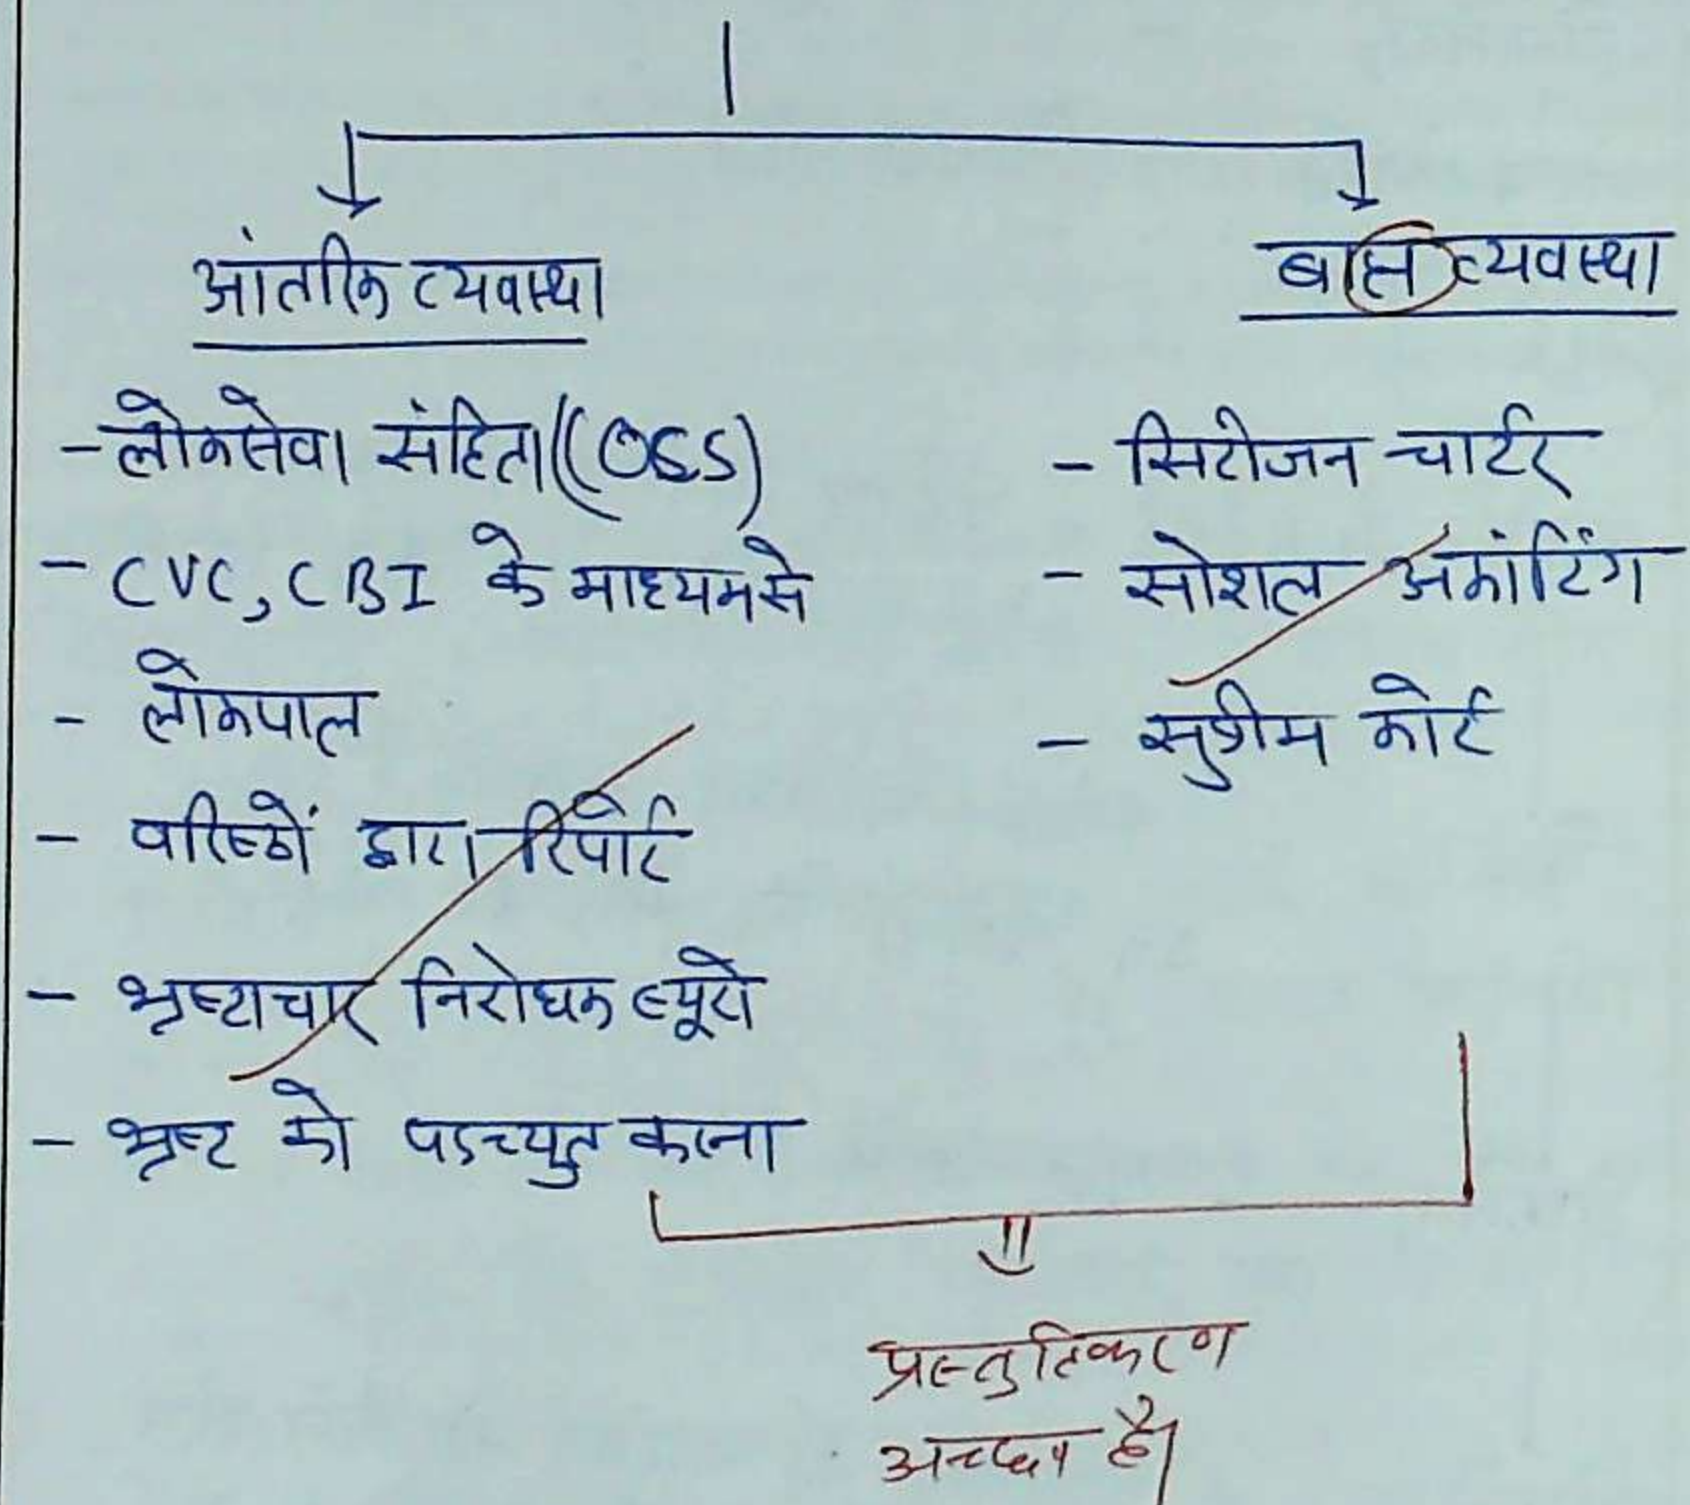 आंतरिक व्यवस्था
- लोकसेवा संहिता
- CVC, CBI के माध्यम से
- लोकपाल
- वरिष्ठों द्वारा रिपोर्ट
- भ्रष्टाचार निरोधक ब्यूरो
- भ्रष्ट को पदच्युत करना
व्यवस्था
- सिटीजन चार्टर
- सोशल अकांटिंग
- सुप्रीम कोर्ट
प्रस्तुतिकरण
अच्छा है।